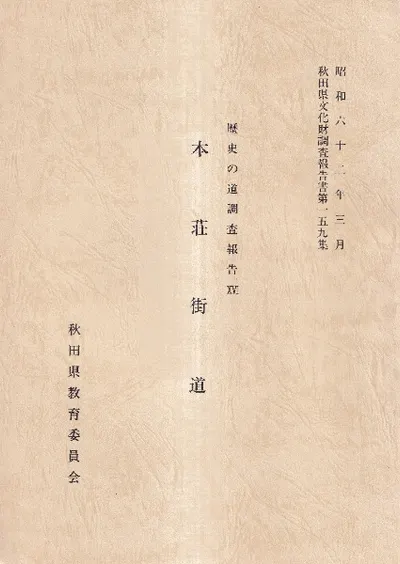 昭和六十二年三月
秋田県文化財調査報告書第一五九集
歴史の道調査報告 XV
本荘街道
秋田県教育委員会